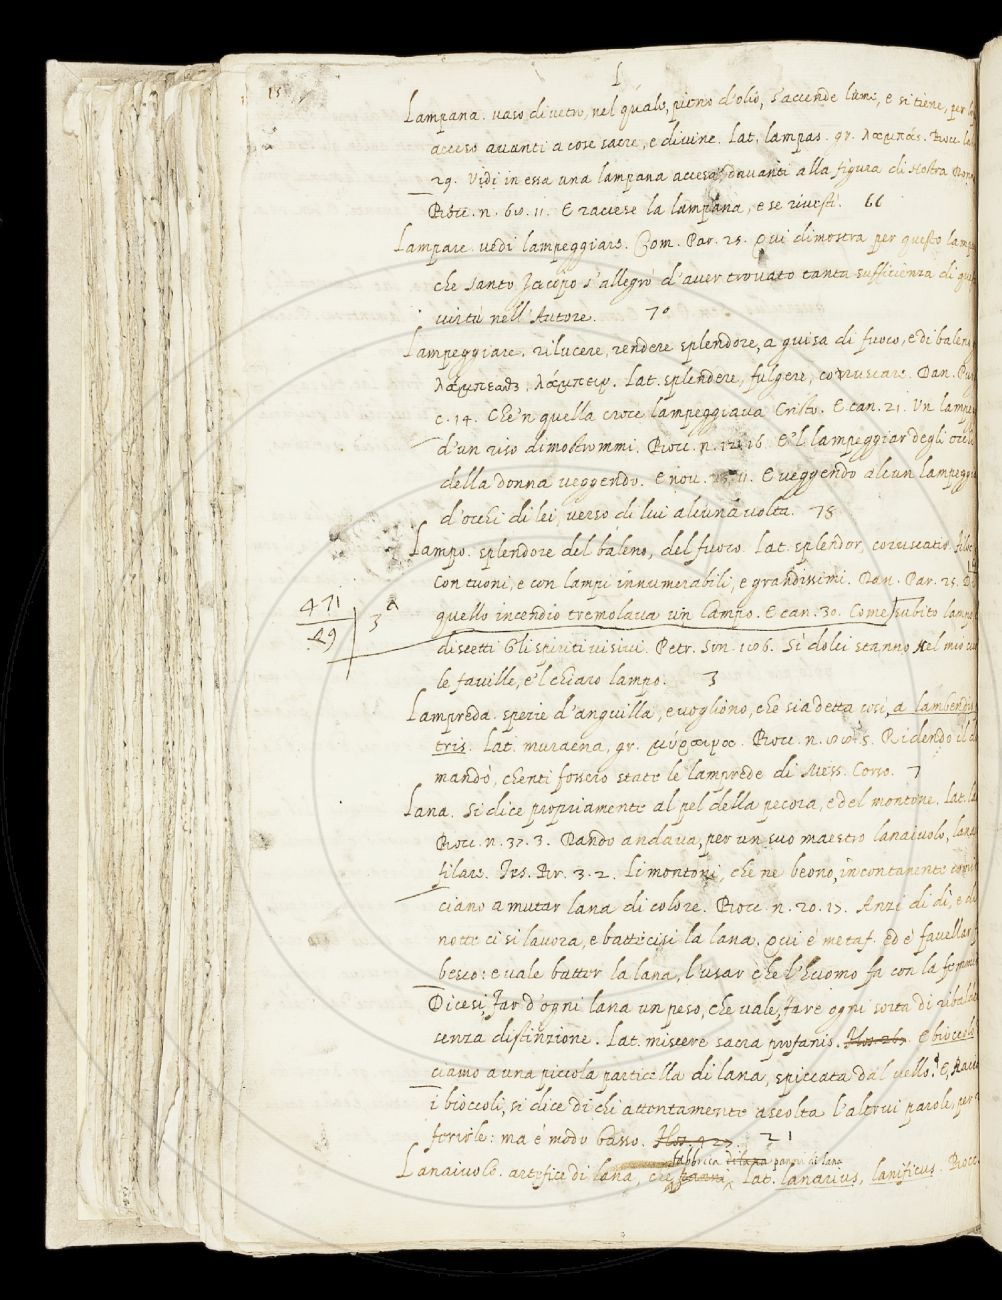 15
L
Lampana. vaso di vetro, nel quale, pieno d'olio, s'accende lume, e si tiene, per
acceso avanti a cose sacre, e divine. Lat. lampas. gr. λαμπάς. Bocc.
29. Vidi in essa una lampana accesa davanti alla figura di Nostra
Bocc. n. 60. 11. E raccese la lampana, e se rivestì. 66
Lampare. vedi lampeggiare. Com. Par. 25. Qui dimostra per questo
che Santo Jacopo s'allegrò d'aver trovato tanta sufficienza di
virtù nell'Autore. 70
Lampeggiare. rilucere, rendere splendore, a guisa di fuoco, e di baleno
λάμπεσθαι, λάμπειν. Lat. splendere, fulgere, corruscare. Dan.
c. 14. Che'n quella croce lampeggiava Cristo. E can. 21. Un
d'un riso dimostrommi. Bocc. n. E'l lampeggiar degli
della donna veggendo. E nov. E veggendo alcun
d'occhi di lei, verso di lui alcuna volta. 78
Lampo. splendore del baleno, del fuoco. Lat. splendor, coruscatio.
con tuoni, e con lampi innumerabili, e grandissimi. Dan. Par. 25.
quello incendio tremolava un lampo. E can. 30. Come subito lampo
discetti Gli spiriti visivi. Petr. Son. Sì dolci stanno nel mio
le faville, e'l chiaro lampo. 3
471
29
3
Lampreda. spezie d'anguilla, e vogliono, che sia detta così, a lambendis
tris. Lat. muraena, gr. μύραινα. Bocc. n. Ridendo il
mandò, chenti fossero state le lamprede di Mess. Corso. 7
Lana. Si dice propriamente al pel della pecora, e del montone. Lat.
Bocc. n. 37. 3. Dando andava, per un suo maestro lanaivolo,
filare. Tes. Br. 3. 2. Li montoni, che ne beono, incontanente
ciano a mutar lana di colore. Bocc. n. 20. 17. Anzi di dì, e di
notte ci si lavora, e battecisi la lana. Qui è metaf. ed è favellar
besco: e vale batter la lana, l'usar che l'huomo fa con la
Dicesi, Far d'ogni lana un peso, che vale, fare ogni sorta di
senza distinzione. Lat. miscere sacra profanis. E bioccoli
ciamo a una piccola particella di lana, spiccata dal vello. E,
i bioccoli, si dice di chi attentamente ascolta l'altrui parole, per
ferirle: ma è modo basso. 21
fabbrica panni di lana
Lanaivolo. artefice di lana, che Lat. lanarius, lanificus. Bocc.